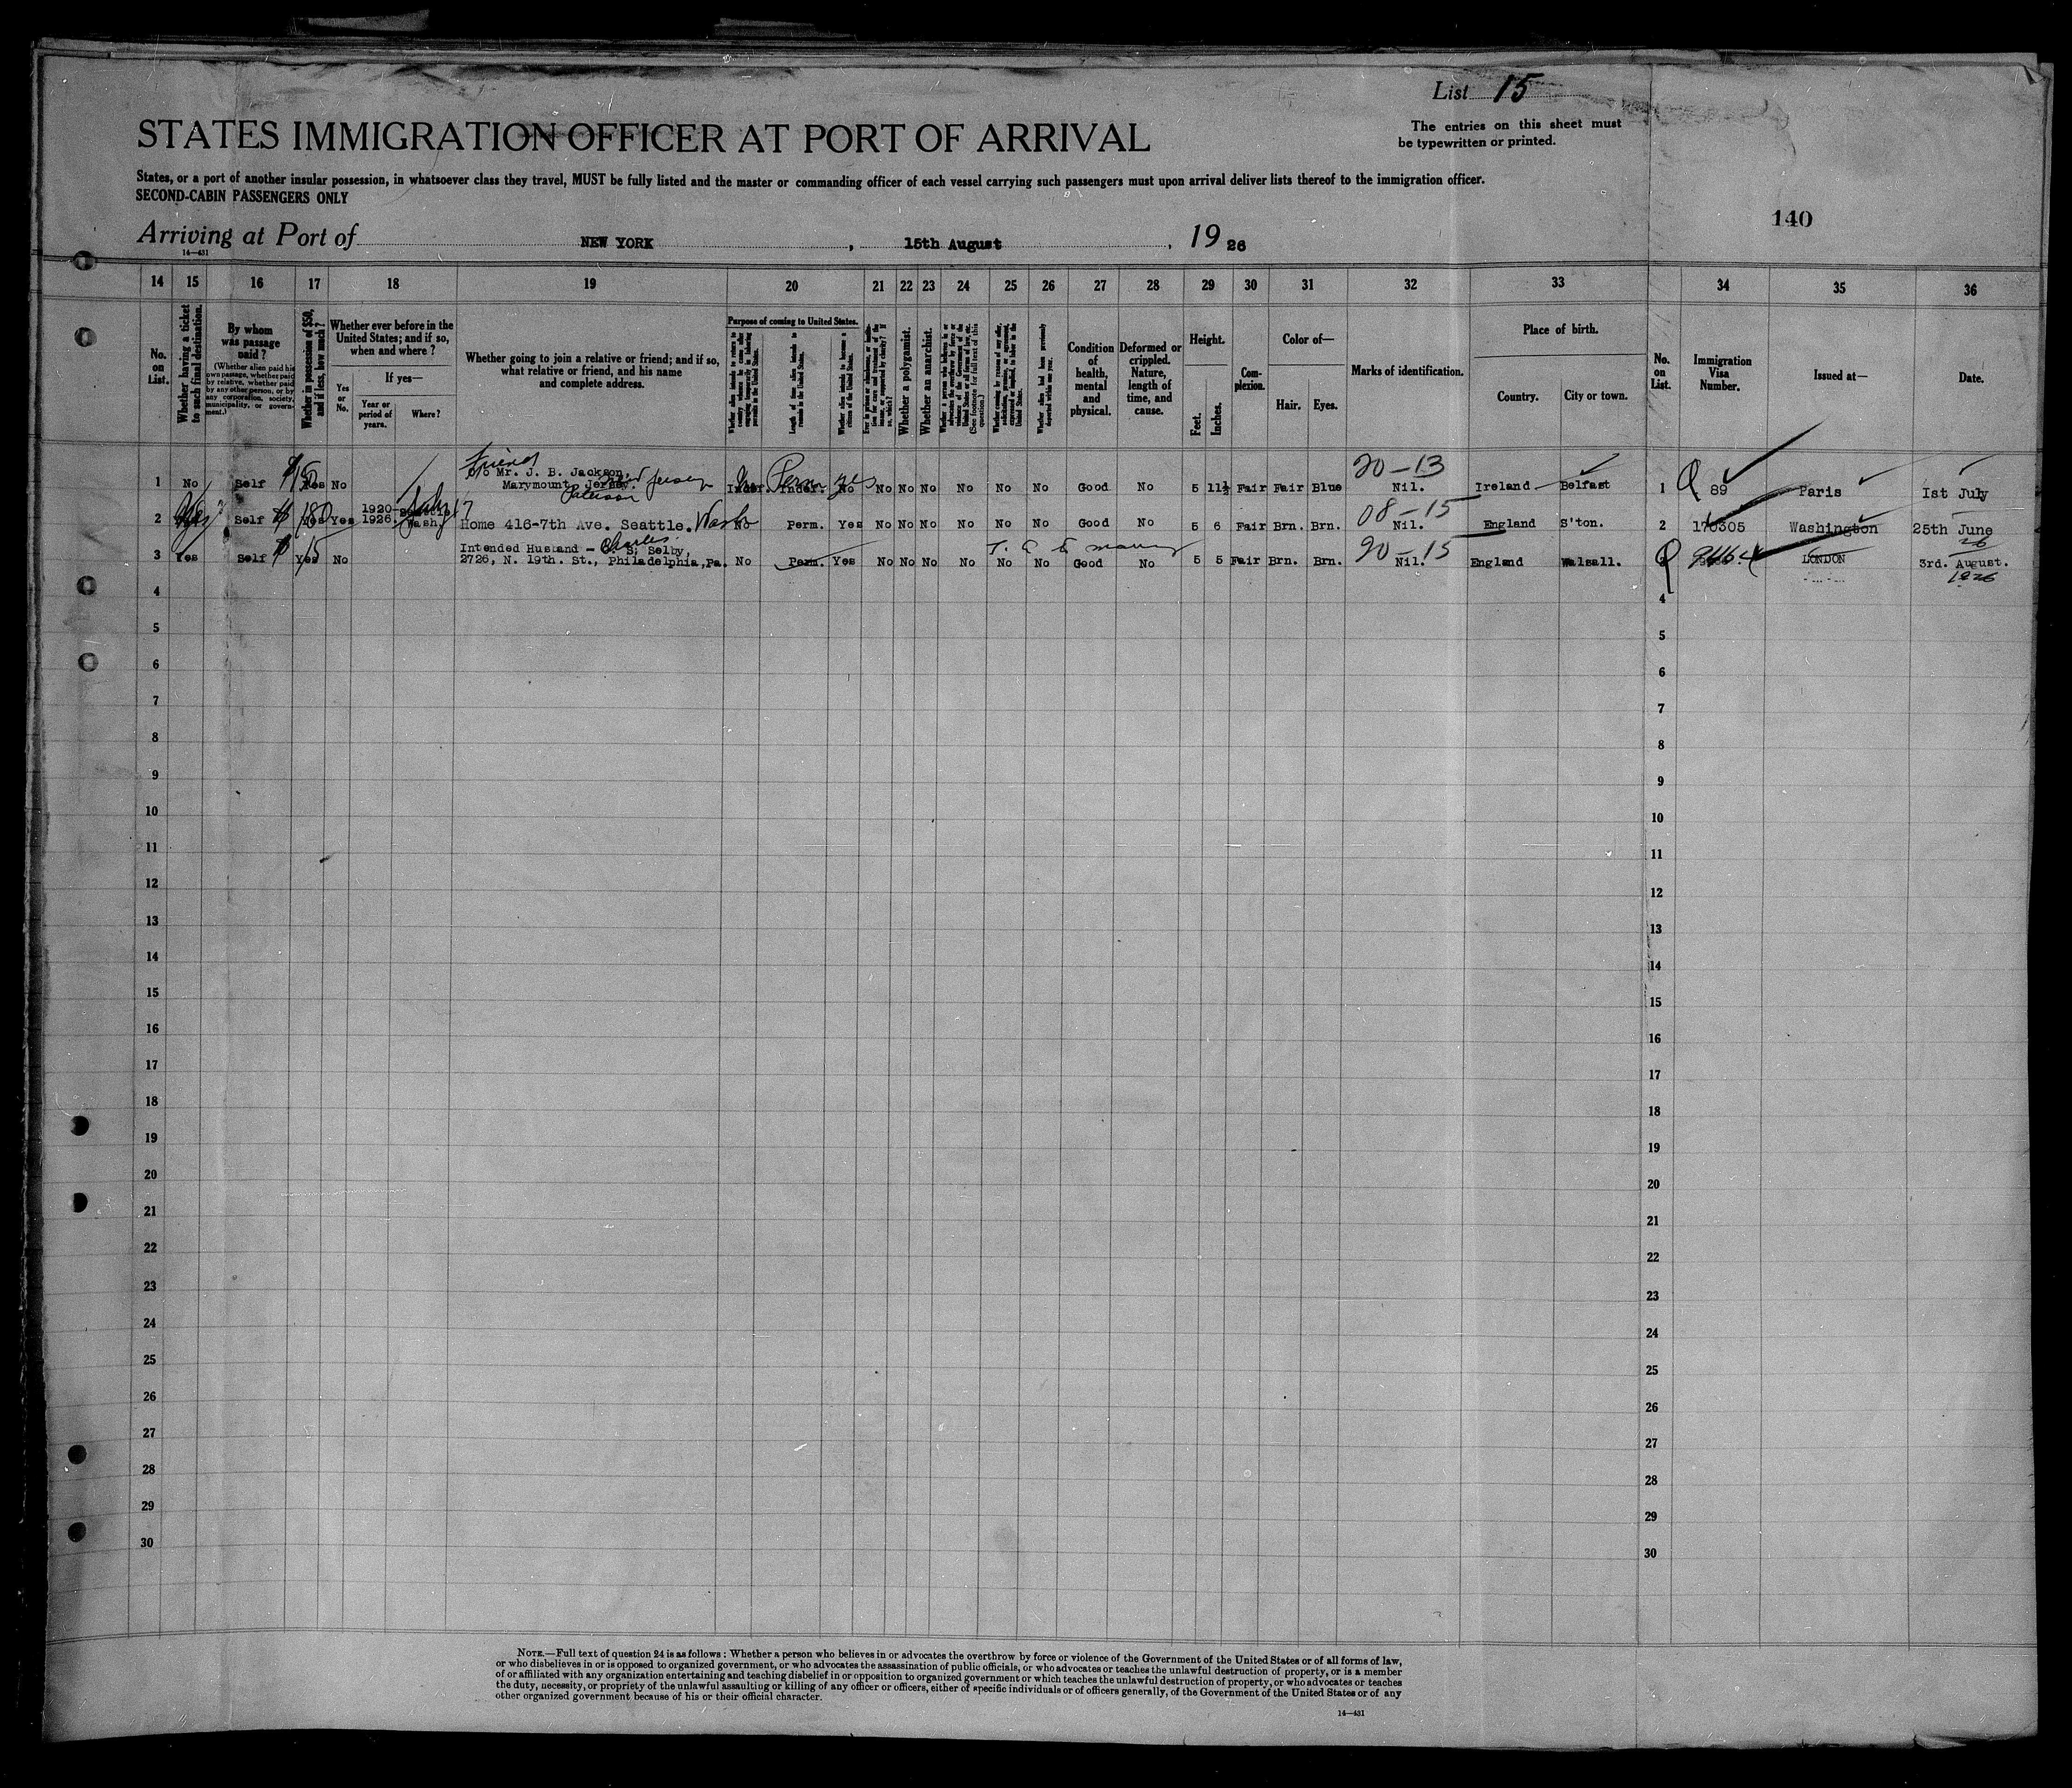 List 15
STATES IMMIGRATION OFFICER AT PORT OF ARRIVAL
The entries on this sheet must
be typewritten or printed.
States, or a port of another insular possession, in whatsoever class they travel, MUST be fully listed and the master or commanding officer of each vessel carrying such passengers must upon arrival deliver lists thereof to the immigration officer.
SECOND-CABIN PASSENGERS ONLY
140
Arriving at Port of NEW YORK, 15th August, 1926
14—431
14 15 16 17 18 19 20 21 22 23 24 25 26 27 28 29 30 31 32 33 34 35 36
No. on List.
Whether having a ticket to such final destination.
By whom was passage paid?
(Whether alien paid his own passage, whether paid by relative, whether paid by any other person, or by any corporation, society, municipality, or government.)
Whether in possession of $50, and if less, how much?
Whether ever before in the United States; and if so, when and where?
Yes or No.
If yes—
Year or period of years.
Where?
Whether going to join a relative or friend; and if so, what relative or friend, and his name and complete address.
Purpose of coming to United States.
Length of time alien intends to remain in the United States.
Whether alien intends to become a citizen of the United States.
Whether a polygamist.
Whether an anarchist.
Condition of health, mental and physical.
Deformed or crippled. Nature, length of time, and cause.
Height.
Feet. Inches.
Complexion.
Color of—
Hair. Eyes.
Marks of identification.
Place of birth.
Country. City or town.
No. on List.
Immigration Visa Number.
Issued at—
Date.
Friend 20-13
1 No Self $150 Yes No c/o Mr. J. B. Jackson, Marymount, Jersey. Paterson New Jersey No Inder. Perm Inder. yes No No No No No No No Good No 5 11½ Fair Fair Blue Nil. Ireland Belfast 1 Q 89 Paris 1st July
08-15
2 Yes Self $180 Yes Yes 1920-1926 Seattle Wash Home 416-7th Ave. Seattle. Wash No Perm. Yes No No No No No No Good No 5 6 Fair Brn. Brn. Nil. England S'ton. 2 170305 Washington 25th June 26
20-15
3 Yes Self $15 Yes No Intended Husband - Charles S. Selby, 2726, N. 19th. St., Philadelphia, Pa. No Perm. Yes No No No No No No Good No 5 5 Fair Brn. Brn. Nil. England Walsall. Q LONDON 3rd. August. 1926
4 4
5 5
6 6
7 7
8 8
9 9
10 10
11 11
12 12
13 13
14 14
15 15
16 16
17 17
18 18
19 19
20 20
21 21
22 22
23 23
24 24
25 25
26 26
27 27
28 28
29 29
30 30
NOTE.—Full text of question 24 is as follows: Whether a person who believes in or advocates the overthrow by force or violence of the Government of the United States or of all forms of law,
or who disbelieves in or is opposed to organized government, or who advocates the assassination of public officials, or who advocates or teaches the unlawful destruction of property, or is a member
of or affiliated with any organization entertaining and teaching disbelief in or opposition to organized government or which teaches the unlawful destruction of property, or who advocates or teaches
the duty, necessity, or propriety of the unlawful assaulting or killing of any officer or officers, either of specific individuals or of officers generally, of the Government of the United States or of any
other organized government because of his or their official character.
14—431